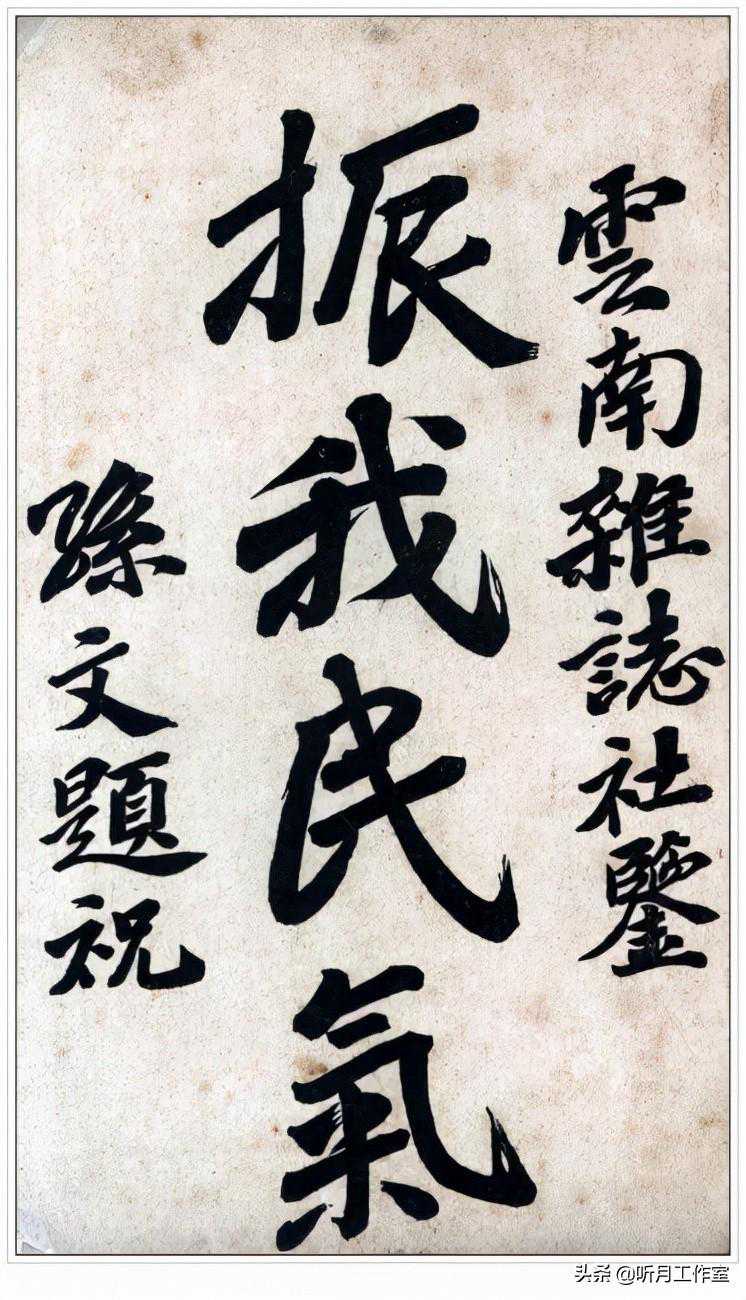 雲南雜誌社鑒
振我民氣
孫文題祝
头条 @听月工作室